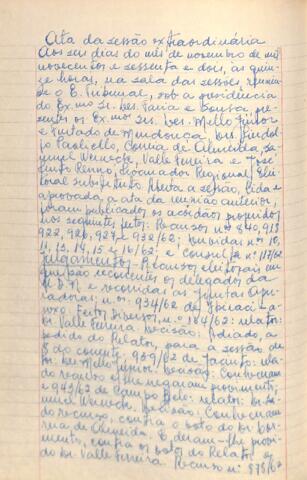 Ata da sessão extraordinária
Aos seis dias do mês de novembro de mil
novecentos e sessenta e dois, às quin-
ze horas, na sala das sessões, reuniu-
se o E. Tribunal, sob a presidencia
do Exmo. Sr. Des. Faria e Sousa, pre-
sentes os Exmos. Srs. Des. Mello Junior
e Furtado de Mendonça, Drs. Lindol-
fo Paoliello, Correia de Almeida, Sa-
muel Werneck, Valle Ferreira e José
Pinto Renno, Procurador Regional Elei-
toral substituto. Aberta a sessão, lida e
aprovada a ata da reunião anterior,
foram publicados os acordãos proferidos
nos seguintes feitos: Recursos nos 840, 913
922, 926, 927 e 932/62; duvidas nos 10,
11, 13, 14, 15 e 16/62; e Consulta nº 117/62
Julgamentos - Recursos eleitorais em
que são recorrentes os delegados da
U.D.N e recorridas as Juntas Apu-
radoras: n.os: 934/62 de
Feito Diverso, n.o 184/62: relator:
Dr Valle Ferreira. Decisão: Adiado, a
pedido do Relator, para a sessão de
8 do corrente; 939/62 de Jacinto: rela-
tor: Des Mello Junior. Decisão: Conheceram
do recurso e lhe negaram provimento;
e 943/62 de Campo Belo: relator: Dr Sa-
muel Werneck. Decisão: Conheceram
do recurso, contra o voto do Dr Cor-
reia de Almeida. E deram-lhe provi-
mento, contra os votos do Relator e
do Dr Valle Ferreira. Recurso n.o 878/62